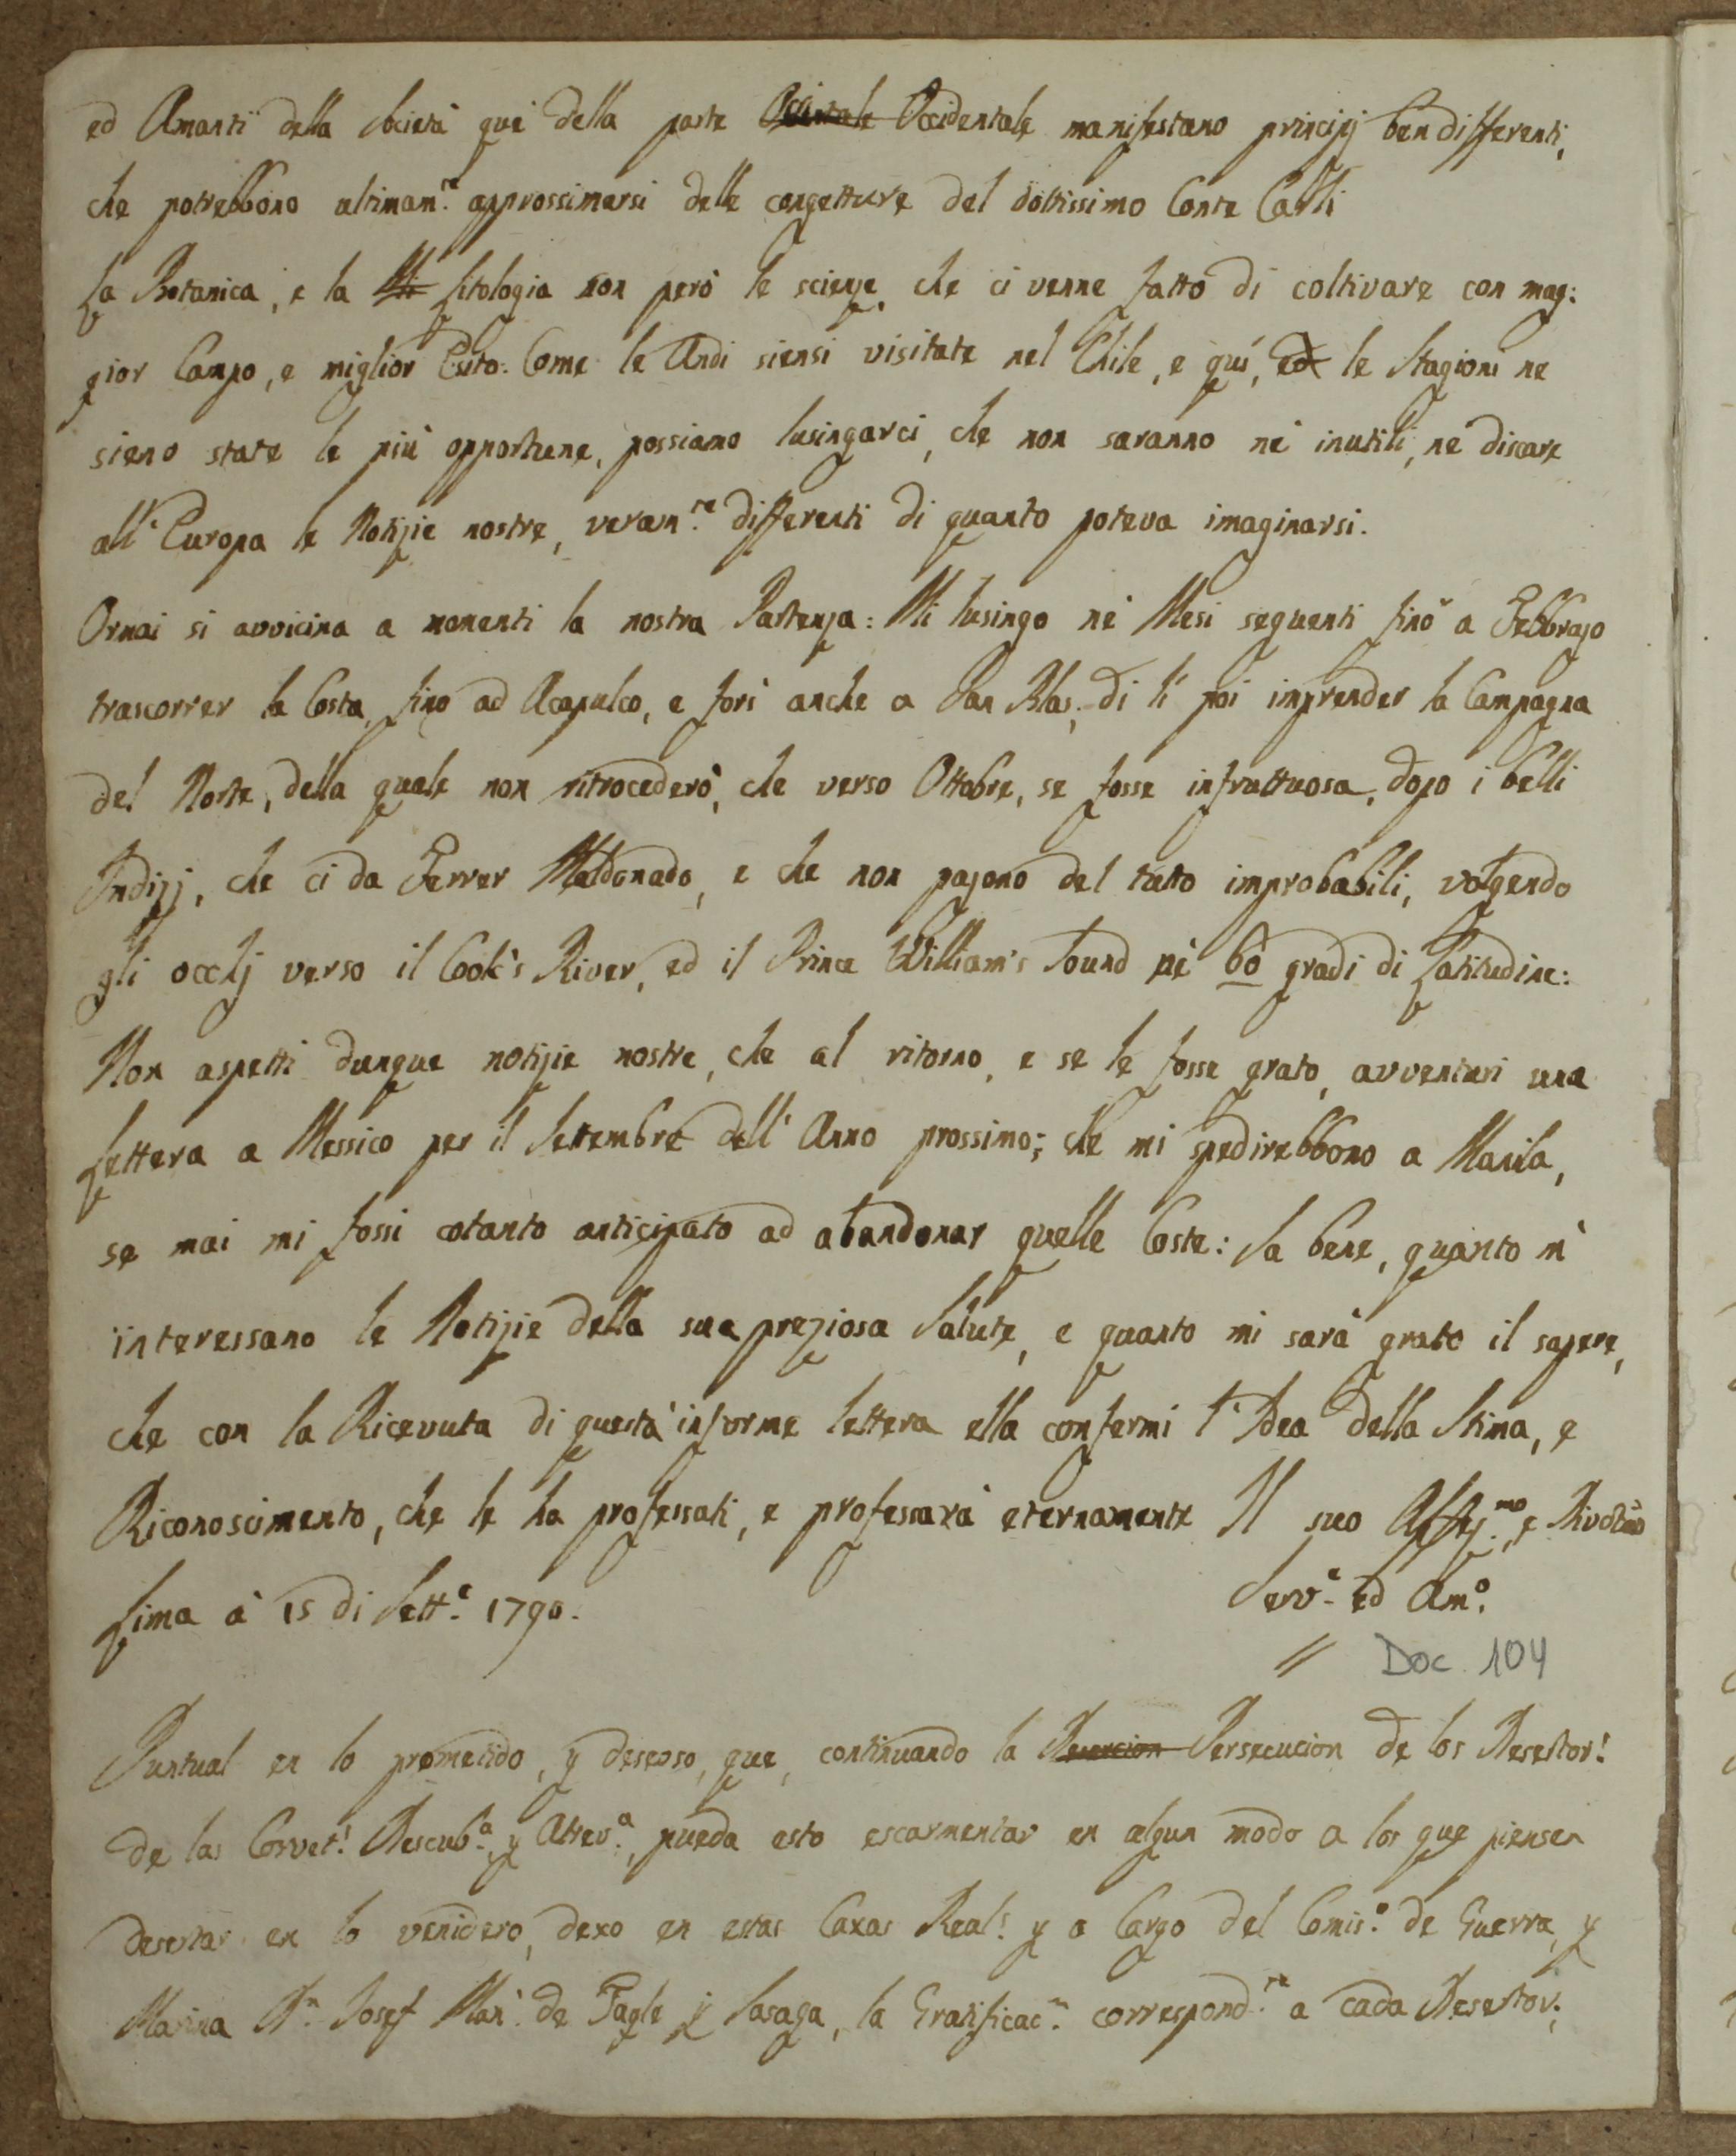 ed Amanti della Società quì della parte Occidentale manifestano principj ben differenti,
che potrebbono ultimam.te approssimarsi delle congetture del dottissimo Conte Carli
La Botanica, e la Litologia son però le scienze, che ci venne fatto di coltivare con mag:
gior Campo, e miglior Esito: Come le Andi siensi visitate nel Chile, e quí, ed le Stagioni ne
sieno state le più opportune, possiamo lusingarci, che non saranno nè inutili, ne discare
all'Europa le Notizie nostre, veram.te differenti di quanto poteva imaginarsi.
Ormai si avvicina a momenti la nostra Partenza: Mi lusingo nè Mesi seguenti fino a Febbrajo
trascorrer la Costa, fino ad Acapulco, e forsi anche a San Blas; di lì poi imprender la Campagna
del Norte, della quale non ritrocederò, che verso Ottobre, se fosse infruttuosa, dopo i belli
Indizj, che ci da Ferrer Maldonado, e che non pajono del tutto improbabili, volgendo
gli occhj verso il Cook's River, ed il Prince William's Sound nè 60 gradi di Latitudine:
Non aspetti dunque notizie nostre, che al ritorno, e se le fosse grato, avventuri una
Lettera a Messico per il Settembre dell'Anno prossimo; che mi spedirebbono a Manila,
se mai mi fossi cotanto anticipato ad abandonar quelle Coste: Sa bene, quanto m'
interessano le Notizie della sua preziosa Salute, e quanto mi sarà grato il sapere,
che con la Ricevuta di questa informe lettera ella confermi l'Idea della Stima, e
Riconoscimento, che le ha professati, e professarà eternamente Il suo Affez.mo, e Divotmo
Lima à 15 di Sett.e 1790. Serv.e ed Am.o
// Doc. 104
Puntual en lo prometido, y deseoso, que, continuando la Desercion Persecucion de los Desertor.s
de las Corvet.s Descub.a y Atrev.a, pueda esto escarmentar en algun modo a los que piensen
desertar en lo venidero, dexo en estas Caxas Real.s y a Cargo del Comis.o de Guerra, y
Marina D.n Josef Mar.a de Tagle y Isasaga, la Gratificac.n correspond.te a cada Desertor;